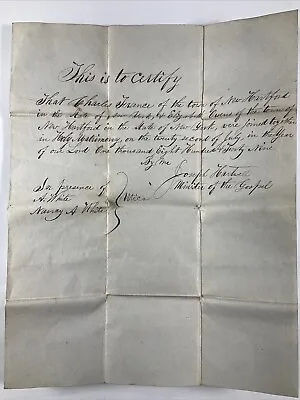 This is to certify
That Charles Torance of the town of New Hartford
in the State of New York, & Elizabeth Evans of the town of
New Hartford in the State of New York, were United by me
in Holy Matrimony, on the twenty second of July, in the Year
of our Lord One thousand Eight Hundred & Forty Nine
By me
Joseph
Minister of the Gospel
In presence of
A. White
Nancy A White